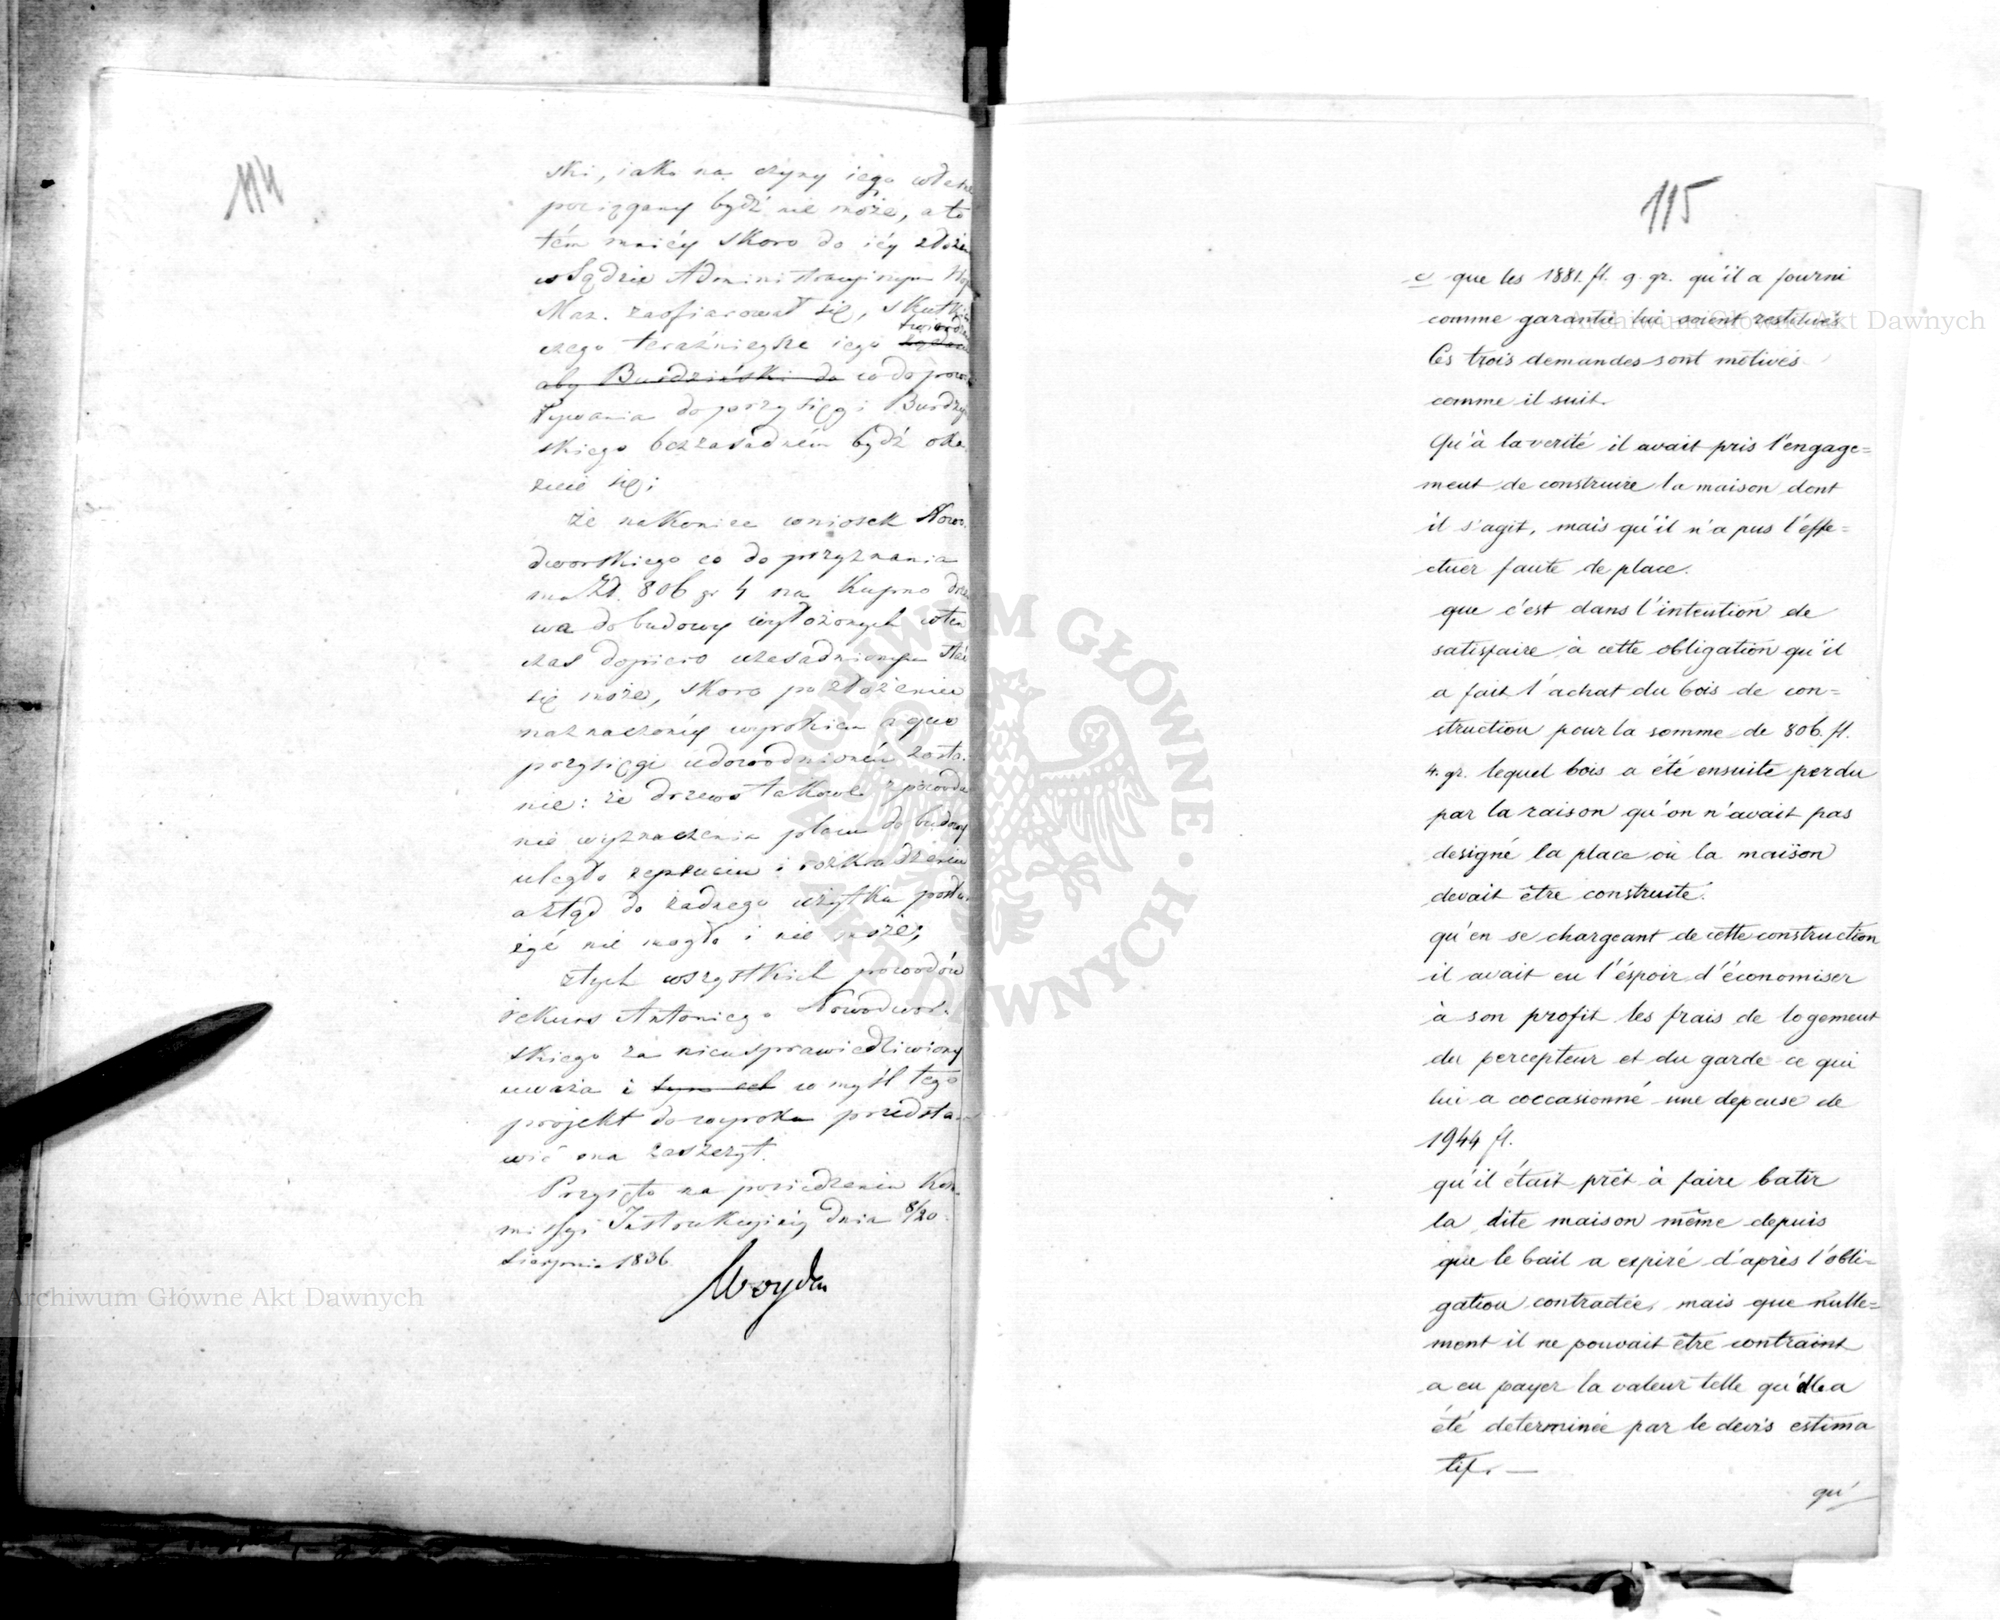 114
ski, iako na czyny iego własne
pociągany bydź nie może, a to
tém mniéy skoro do iéy złoże
w Sądzie Administracyinym Wojew
Maz. zaofiarował się, skutkiem
twierdze
czego teraźnieysze iego
aby Burdziński do co do powo
ływania do przysięgi Burdzyń
skiego bezzasadném bydź oka
zuie się;
że nakoniec wniosek Nowo
dworskiego co do przyznania
mu Zł. 806 gr 4 na kupno drze
wa do budowy wyłożonych wten
czas dopiero uzasadnionym stać
się może, skoro po złożeniu
naznaczonéy wyrokiem a quo
przysięgi udowodnioném zosta
nie: że drzewo takowe z powodu
nie wyznaczenia placu do budowy
uległo zepsuciu i rozkradzeniu
a ztąd do żadnego użytku posłu
żyć nie mogło i nie może;
z tych wszystkich powodów
rekurs Antoniego Nowodwor
skiego za nieusprawiedliwiony
uważa i w myśl tego
projekt do wyroku przedsta
wić ma zaszczyt.
Przyięto na posiedzeniu Kom
missyi Instrukcyinéy dnia 8/20
Sierpnia 1836.
Woyda
115
c/ que les 1881. fl. 9. gr. qu'il a fourni
comme garantie lui soient restitués
Ces trois demandes sont motivés
comme il suit.
Qu'à la verité il avait pris l'engage=
ment de construire la maison dont
il s'agit, mais qu'il n'a pus l'effe=
ctuer faute de place.
que c'est dans l'intention de
satisfaire à cette obligation qu'il
a fait l'achat du bois de con=
struction pour la somme de 806. fl.
4. gr. lequel bois a été ensuite perdu
par la raison qu'on n'avait pas
designé la place où la maison
devait être construite.
qu'en se chargeant de cette construction
il avait eu l'éspoir d'économiser
à son profit les frais de logement
du percepteur et du garde ce qui
lui a occasionné une depense de
1944 fl.
qu'il était prêt à faire batir
la dite maison même depuis
que le bail a expiré d'après l'obli=
gation contractée, mais que nulle=
ment il ne pouvait être contraint
a en payer la valeur telle qu'elle a
été determinée par le devis estima
tif. —
qu'
Archiwum Główne Akt Dawnych
Archiwum Główne Akt Dawnych
ARCHIWUM GŁÓWNE · AKT DAWNYCH ·